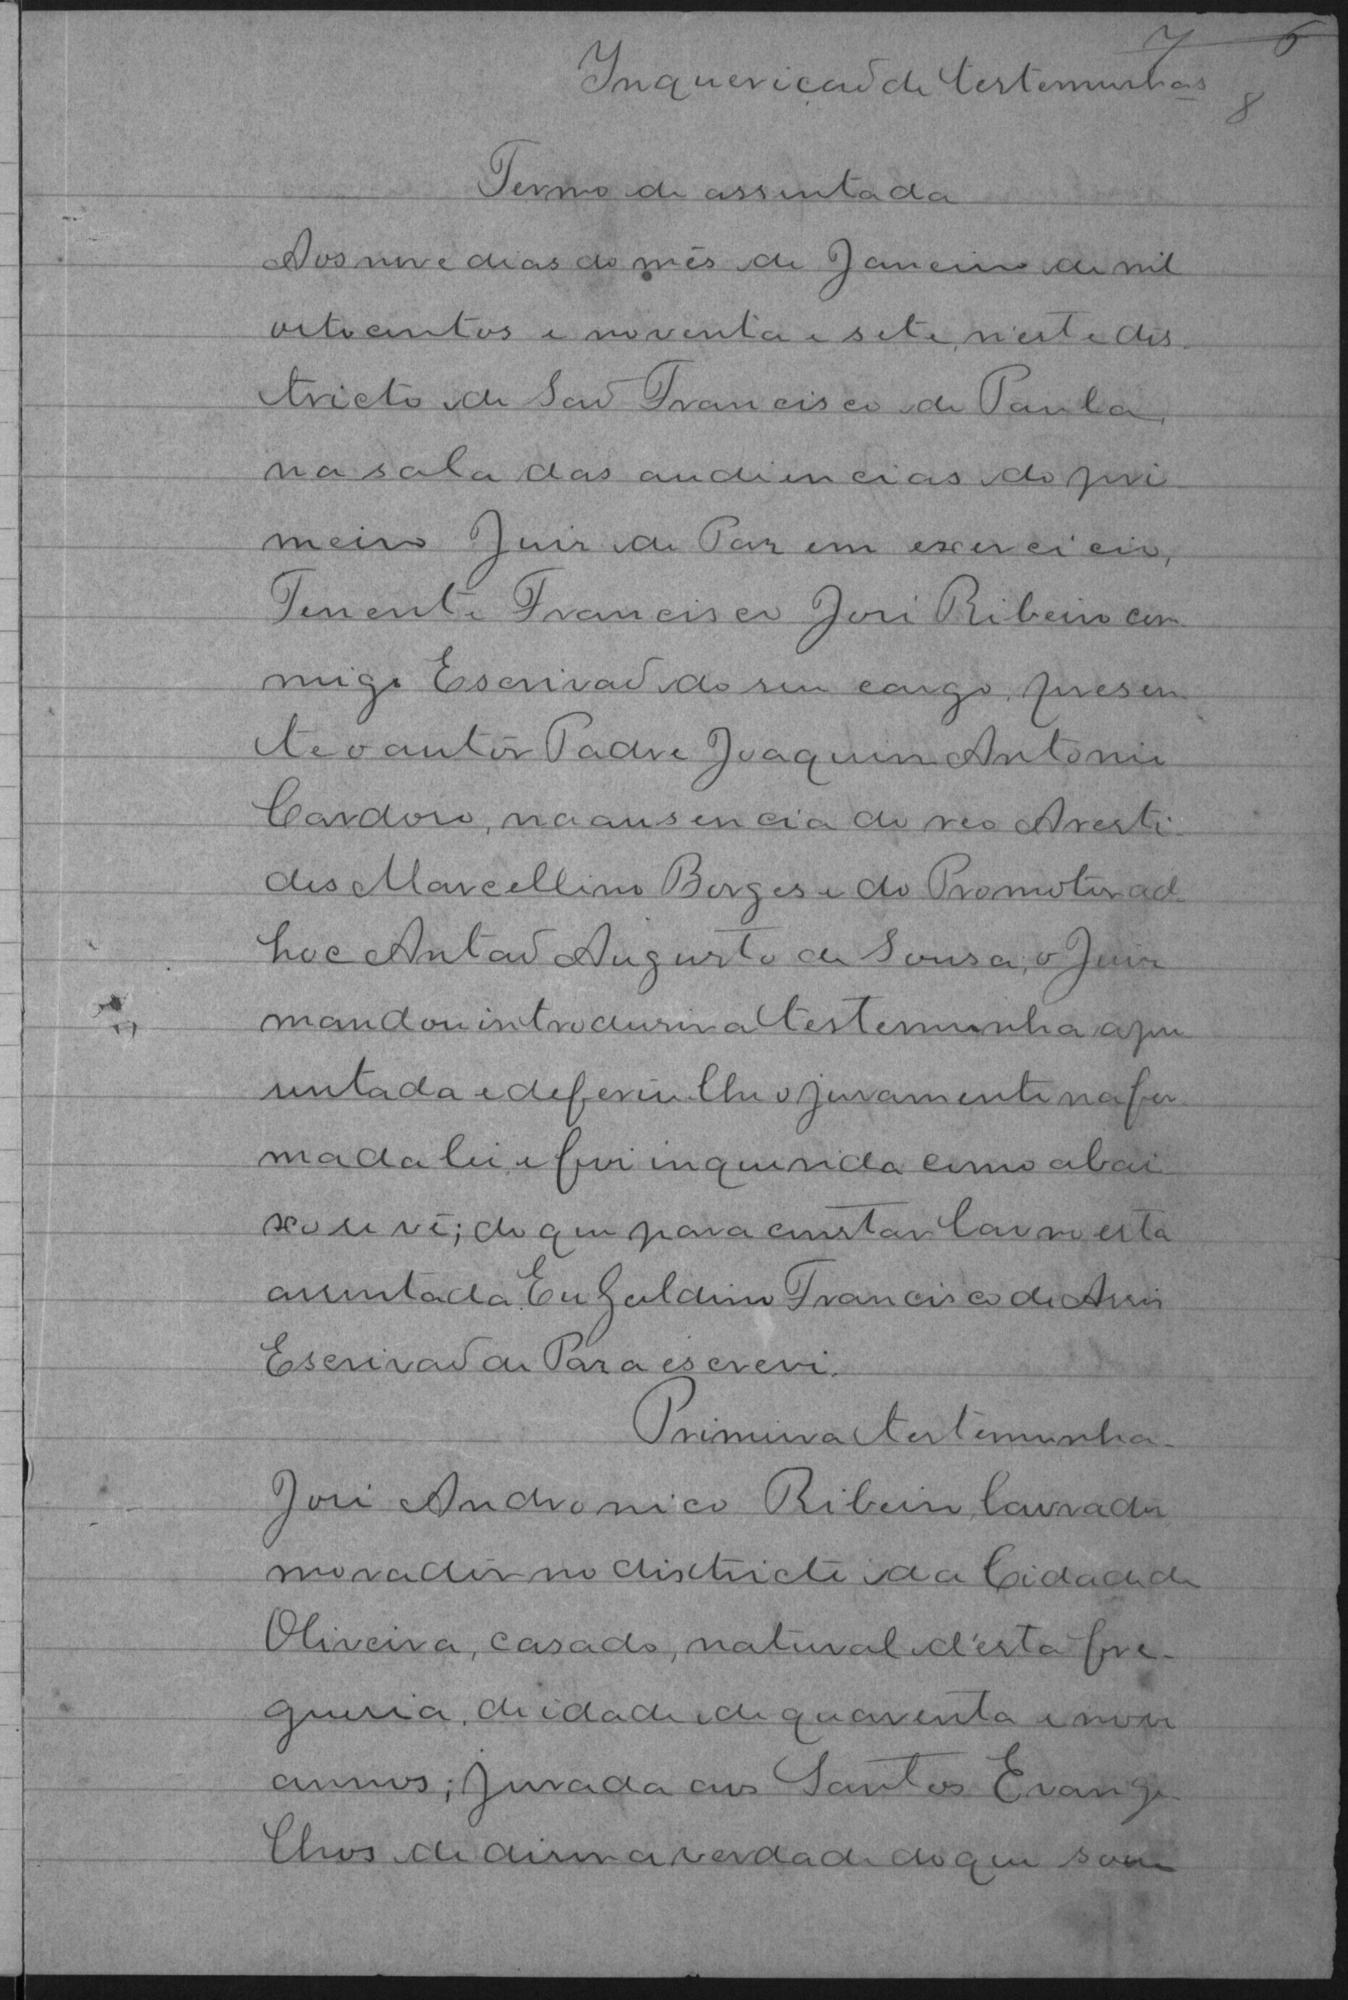 7 6
Inquericaõ de testemunhas
8
Termo de assentada
Aos nove dias do mês de Janeiro de mil
oitocentos e noventa e sete, n'este dis-
tricto de Saõ Francisco de Paula,
na sala das audiencias do pri-
meiro Juiz de Paz em exercicio,
Tenente Francisco José Ribeiro com-
migo Escrivaõ do seu cargo, presen-
te o autôr Padre Joaquim Antonio
Cardoso, na ausencia do reo Aresti-
des Marcellino Borges e do Promotor ad-
hoc Antaõ Augusto de Sousa, o Juiz
mandou introdusir a testemunha apre
sentada e deferiu lhe o juramento na for-
ma da lei, e foi inquerida como abai-
xo se vê; do que para constar lavro esta
assentada. Eu Galdino Francisco de Assis
Escrivaõ de Paz a escrevi.
Primeira testemunha.
José Andronico Ribeiro, lavrador,
moradôr no districto da Cidade de
Oliveira, casado, natural d'esta fre-
guesia, de idade de quarenta e nove
annos; jurada aos Santos Evange-
lhos de diser a verdade do que soube